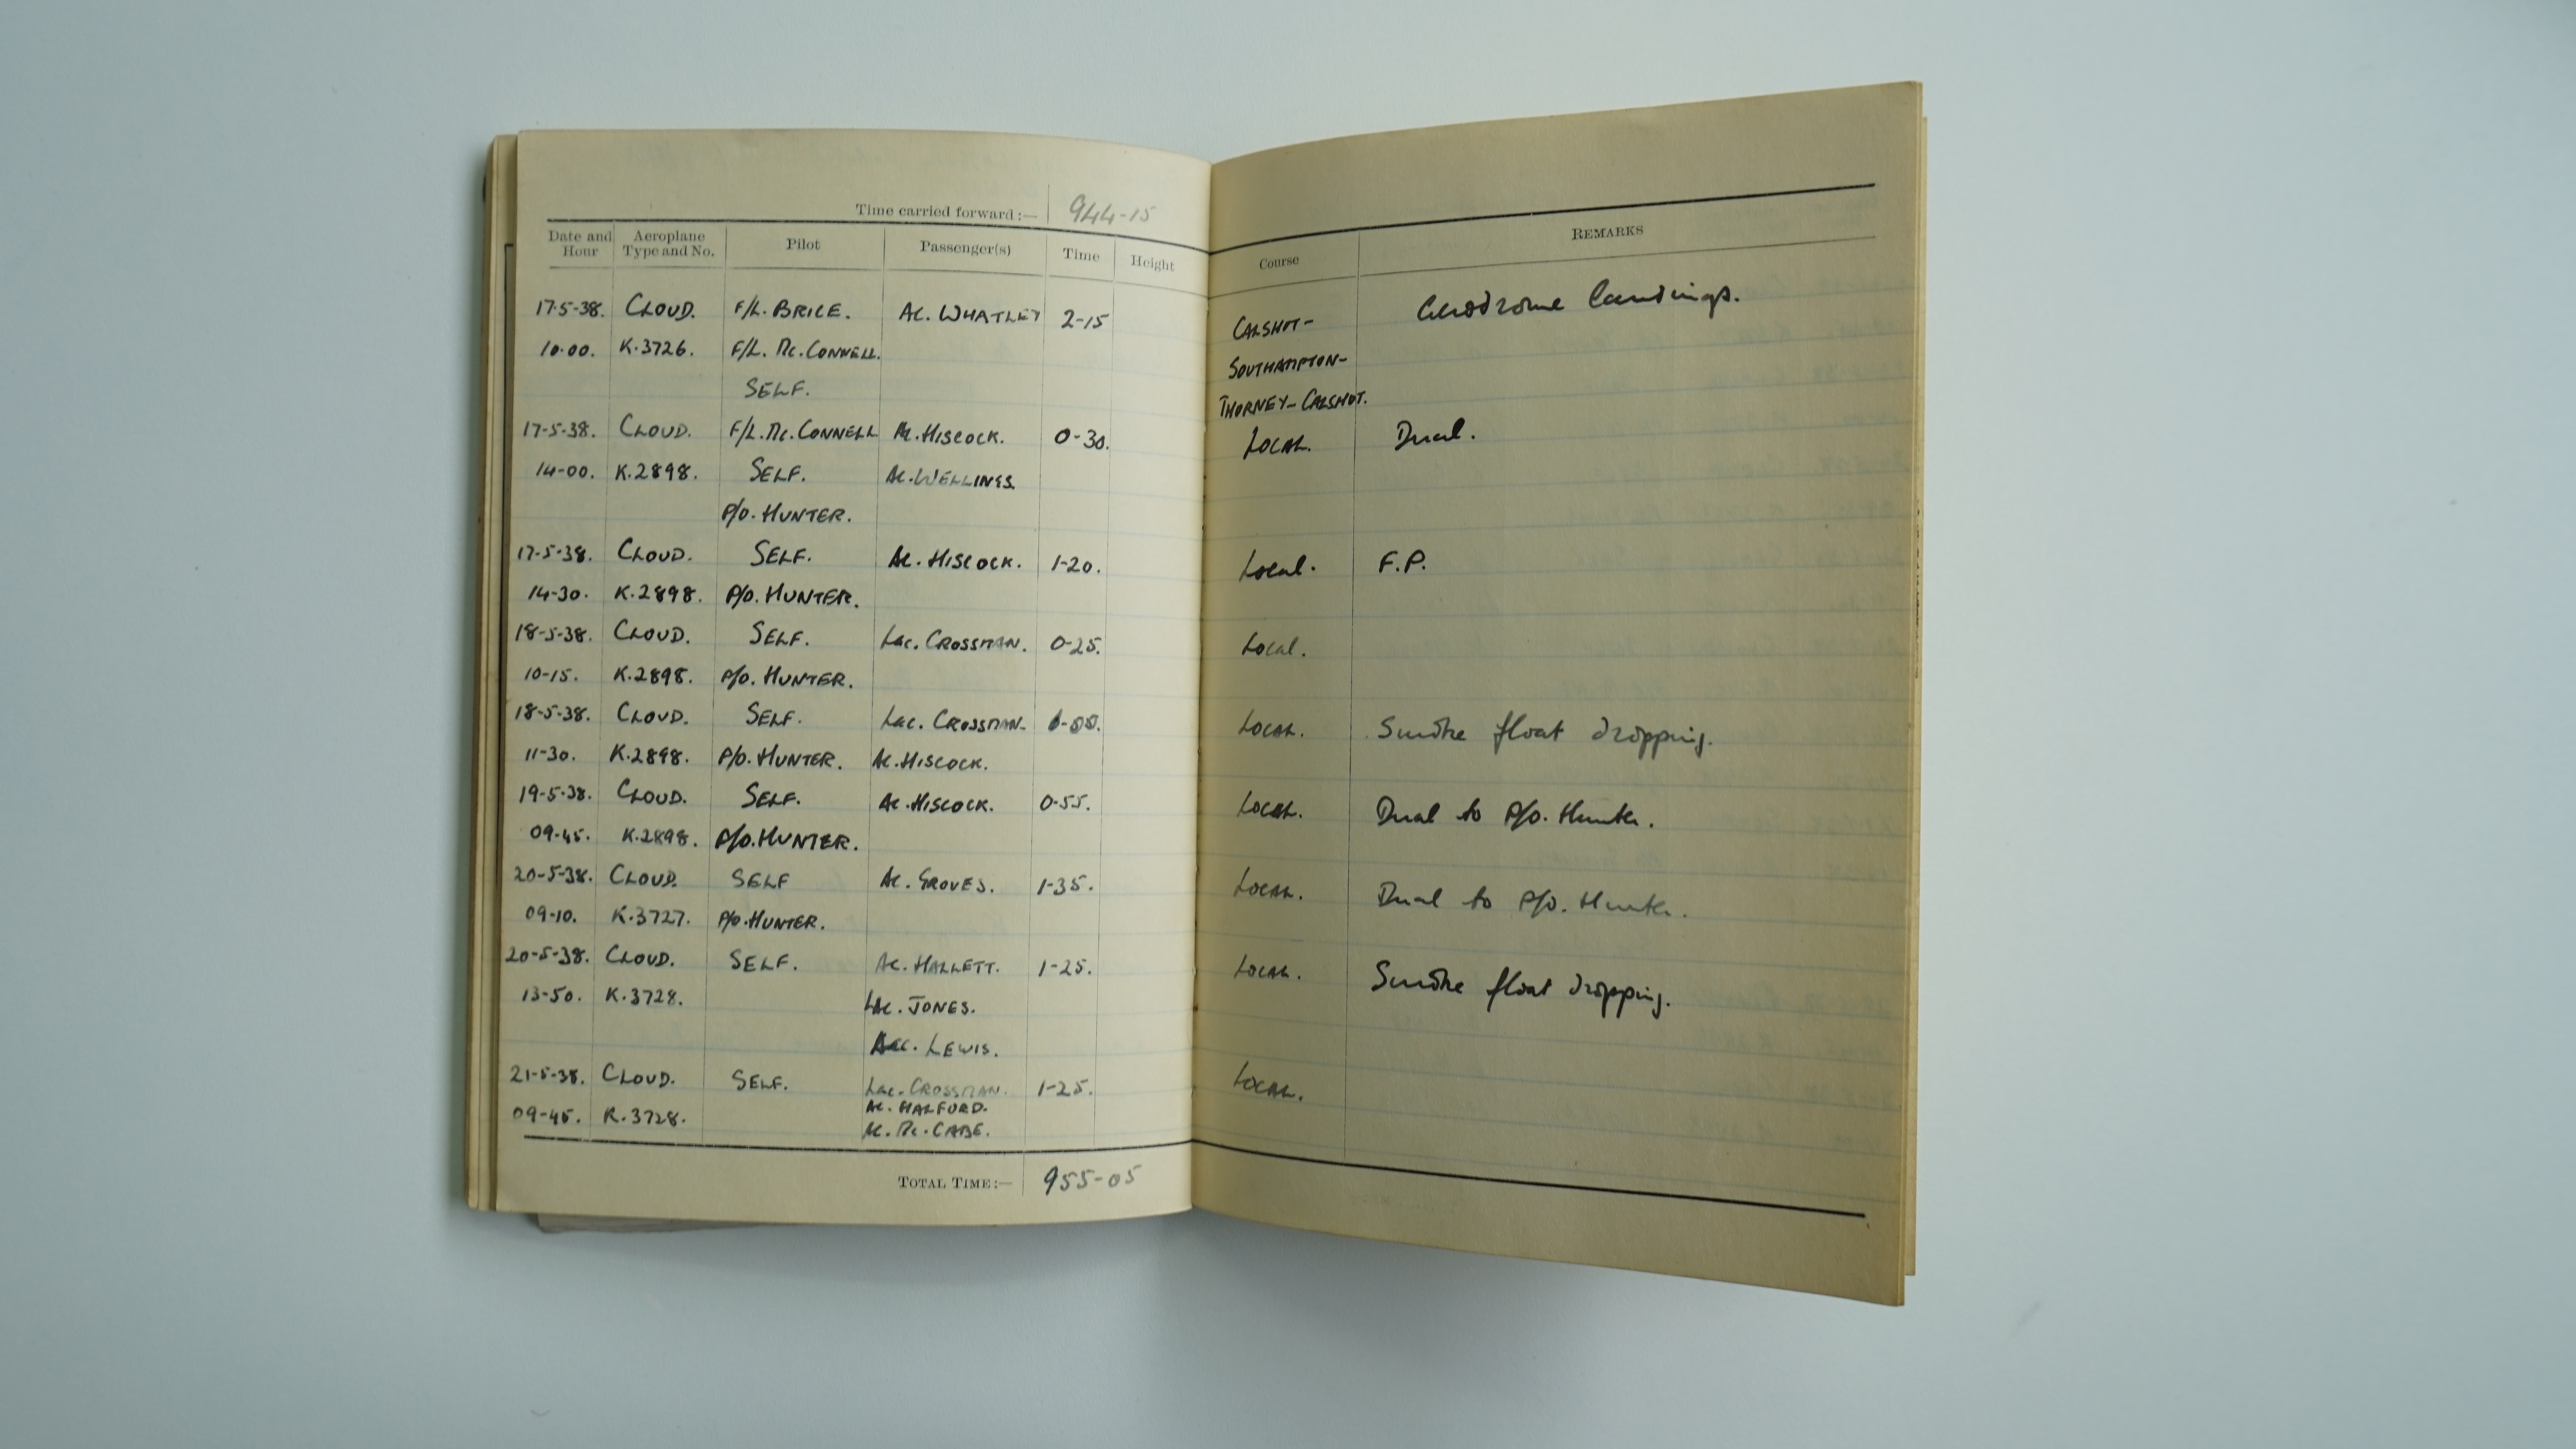 Time carried forward:— 944-15
Date and Hour Aeroplane Type and No. Pilot Passenger(s) Time Height Course REMARKS
17-5-38. CLOUD. F/L. BRICE. AC. WHATLEY 2-15 CALSHOT- Aerodrome Landings.
10.00. K.3726. F/L. Mc. CONNELL. SOUTHAMPTON-
SELF. THORNEY-CALSHOT.
17-5-38. CLOUD. F/L. Mc. CONNELL AC. HISCOCK. 0-30. LOCAL. Dual.
14-00. K.2898. SELF. AC. WELLINGS.
P/O. HUNTER.
17-5-38. CLOUD. SELF. AC. HISCOCK. 1-20. Local. F.P.
14-30. K.2898. P/O. HUNTER.
18-5-38. CLOUD. SELF. Lac. CROSSMAN. 0-25. Local.
10-15. K.2898. P/O. HUNTER.
18-5-38. CLOUD. SELF. Lac. CROSSMAN. LOCAL. Smoke float dropping.
11-30. K.2898. P/O. HUNTER. AC. HISCOCK.
19-5-38. CLOUD. SELF. AC. HISCOCK. 0-55. LOCAL. Dual to P/O. Hunter.
09-45. K.2898. P/O. HUNTER.
20-5-38. CLOUD. SELF AC. GROVES. 1-35. LOCAL. Dual to P/O. Hunter.
09-10. K.3727. P/O. HUNTER.
20-5-38. CLOUD. SELF. AC. HALLETT. 1-25. LOCAL. Smoke float dropping.
13-50. K.3728. LAC. JONES.
LEWIS.
21-5-38. CLOUD. SELF. Lac. CROSSMAN. 1-25. LOCAL.
AC. HALFORD.
09-45. K.3728. AC. Mc. CABE.
TOTAL TIME:— 955-05